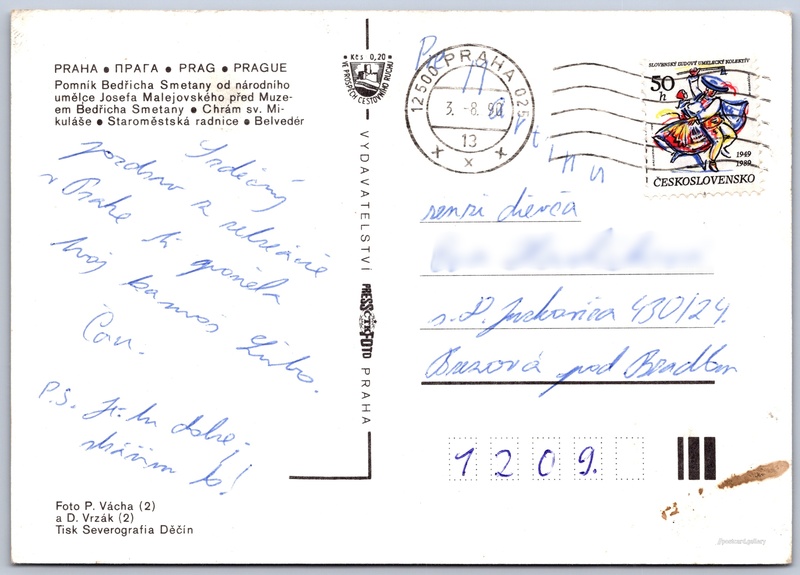 PRAHA ● ПРАГА ● PRAG ● PRAGUE
Pomník Bedřicha Smetany od národního
umělce Josefa Malejovského před Muze-
em Bedřicha Smetany ● Chrám sv. Mi-
kuláše ● Staroměstská radnice ● Belvedér
Srdečný
pozdrav z rekreácie
v Prahe ti posiela
tvoj kamoš Ľubo.
Čau.
P.S. Je tu dobre,
to!
Foto P. Vácha (2)
a D. Vrzák (2)
Tisk Severografia Děčín
Kčs 0,20
VE PROSPĚCH CESTOVNÍHO RUCHU
VYDAVATELSTVÍ PRESSFOTO PRAHA
ČTK
12500 PRAHA 025
3.-8.90
13
SLOVENSKÝ ĽUDOVÝ UMELECKÝ KOLEKTÍV
50
h
1949
1989
ČESKOSLOVENSKO
dievča
430/24.
Brezová pod Bradlom
1209.